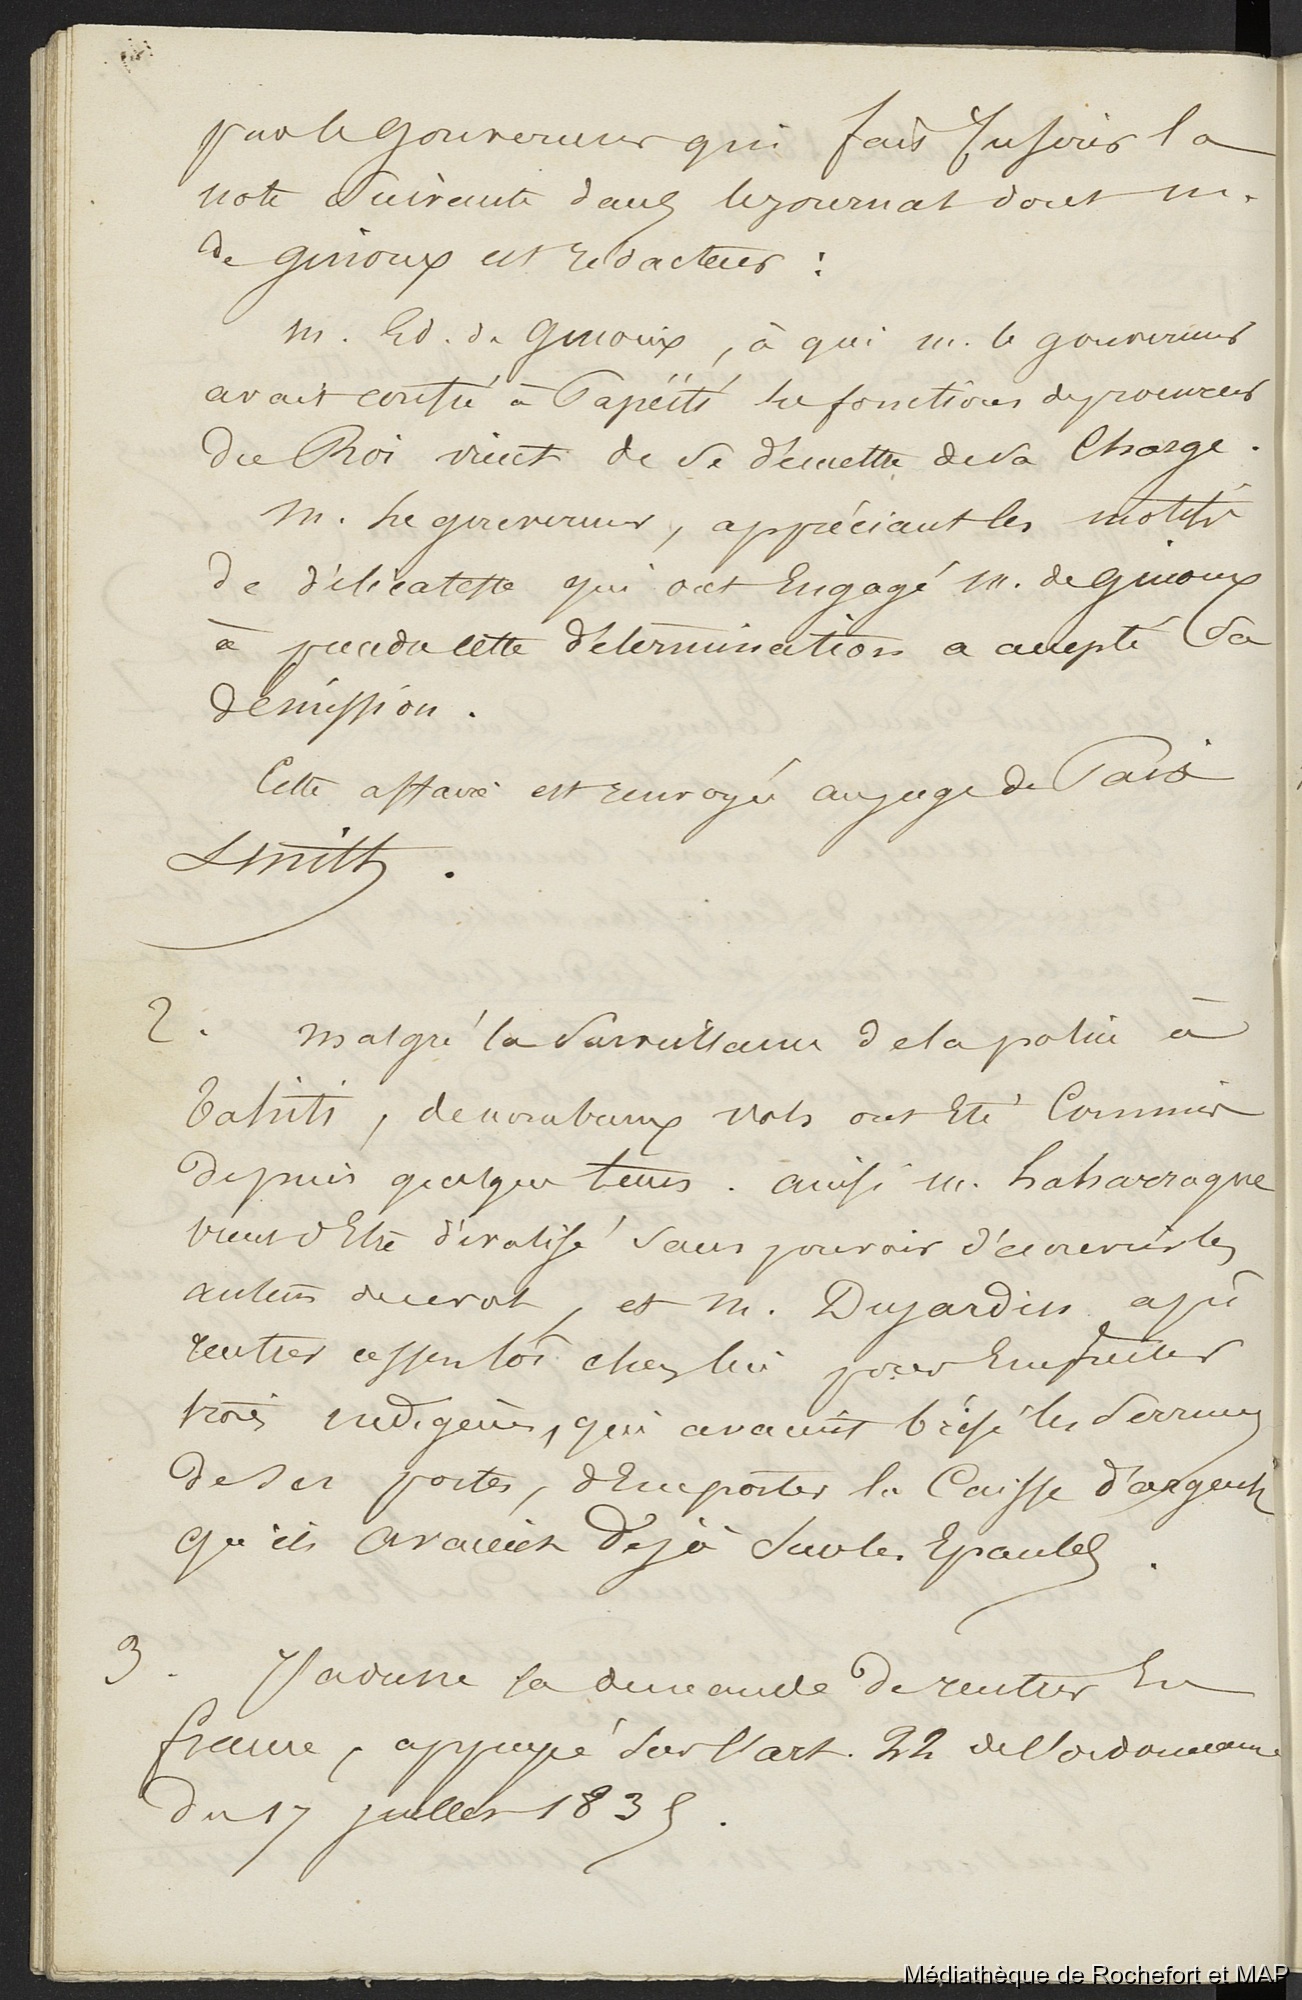 par le gouverneur qui fait insérer la
note suivante dans le journal dont m.
de ginoux est redacteur :
m. Ed. de Ginoux, à qui m. le gouverneur
avait confié à Papéïti les fonctions de procureur
du Roi vient de se démettre de sa charge.
M. le gouverneur, appréciant les motifs
de délicatesse qui ont Engagé M. de ginoux
à prendre cette détermination a accepté sa
demission.
Cette affaire est renvoyée au juge de Paix
Smith.
2. malgré la surveillance de la police à
Tahiti, de nombreux vols ont Eté commis
depuis quelque tems. ainsi m. Labarragne
vient d'Etre dévalisé sans pouvoir découvrir les
auteurs du vol, et M. Dujardin a pû
rentrer assez tôt chez lui pour Empêcher
trois indigènes, qui avaient brisé les serrures
de ses portes, d'Emporter la Caisse d'argent
qu'ils avaient déjà sur les Epaules.
3. J'adresse la demande de rentrer En
france, appuyé sur l'art. 22 de l'ordonnance
du 17 juillet 1835.
Médiathèque de Rochefort et MAP